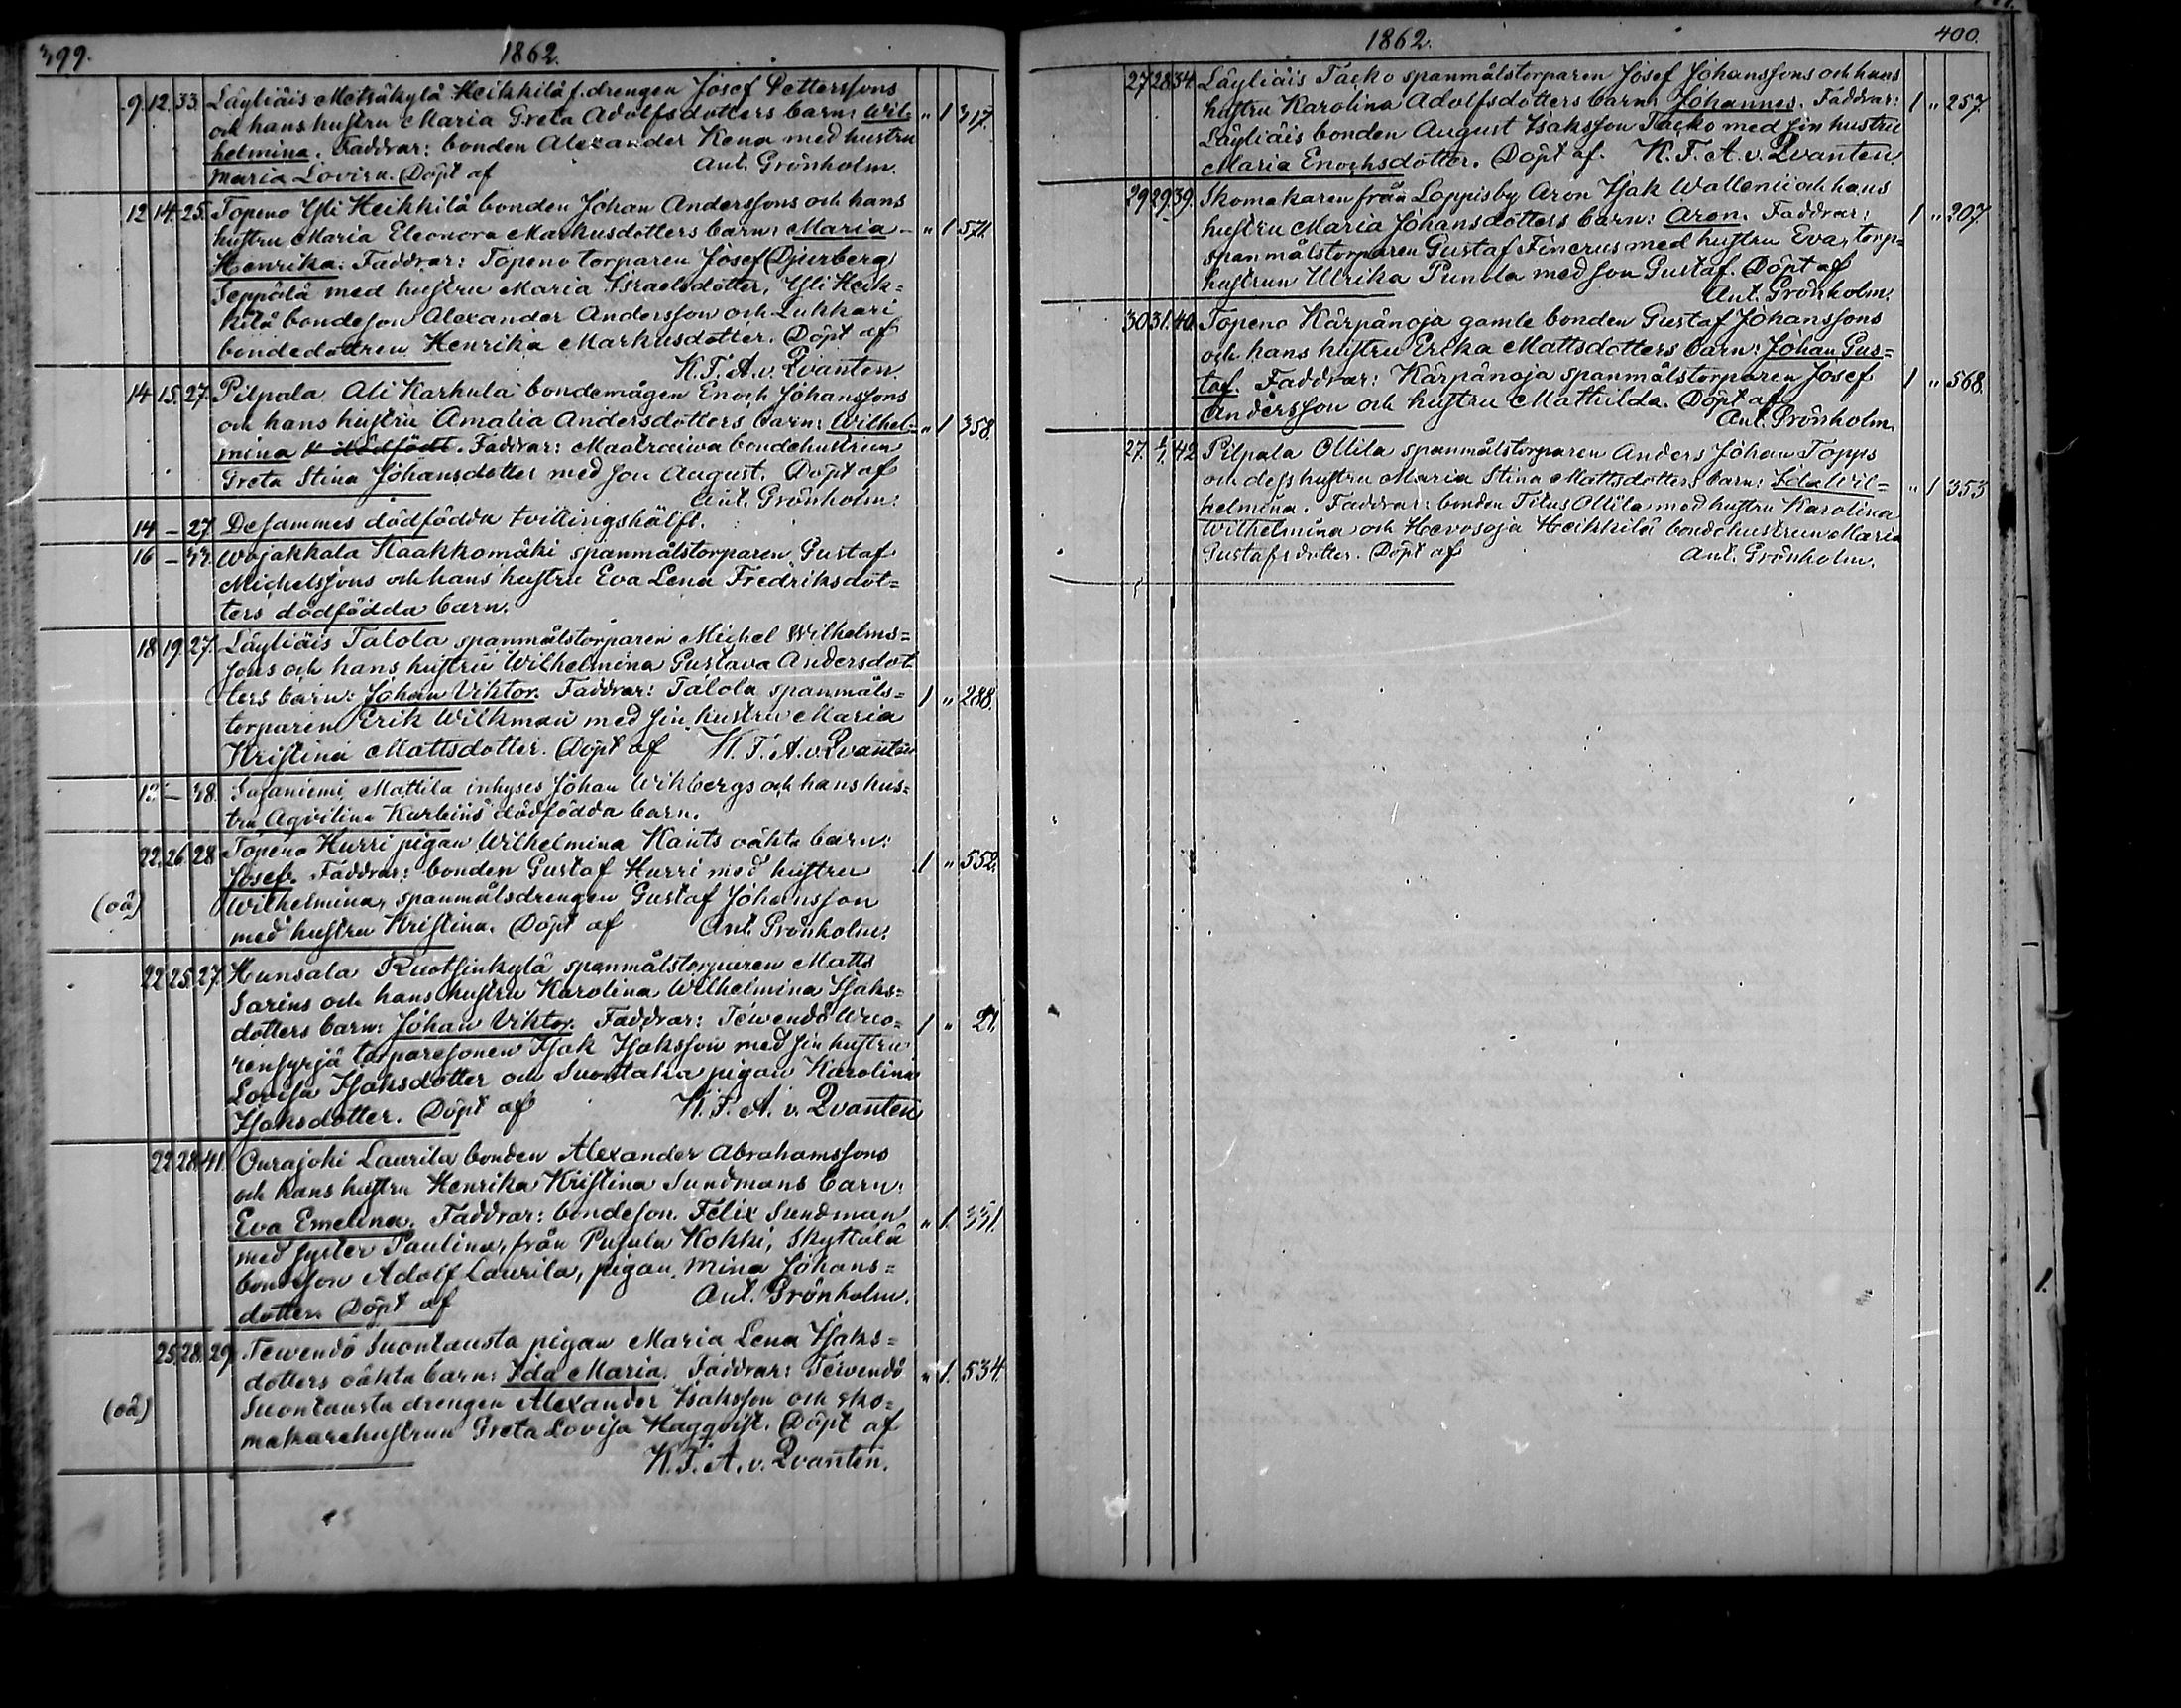 399.
1862.
9. 12. 33. Läyliäis Metsäkylä Heikkilä f. drengen Josef Petterssons
och hans hustru Maria Greta Adolfsdotters barn: Wil=
" 1 317.
helmina. Faddrar: bonden Alexander Kena med hustru
Maria Lovisa. Döpt af Ant. Grönholm.
12 14. 25. Topeno Yli Heikkilä bonden Johan Anderssons och hans
hustru Maria Eleonora Markusdotters barn: Maria
" 1 571.
Henrika. Faddrar: Topeno torparen Josef (Djerberg)
Seppälä med hustru Maria Israelsdotter, Yli Heik=
kilä bondeson Alexander Andersson och Lukkari
bondedottren Henrika Markusdotter. Döpt af
K. F. A. v. Qvanten.
14 15. 27. Pilpala Ali Karhula bondemågen Enoch Johanssons
och hans hustru Amalia Andersdotters barn: Wilhel=
" 1 358.
mina dödfödt. Faddrar: Maatraiwa bondehustrun
Greta Stina Johansdotter med son August. Döpt af
Ant. Grönholm.
14 – 27. Desammes dödfödda tvillingshälft.
16 – 33. Wojakkala Kaakkomäki spanmålstorparen Gustaf
Michelssons och hans hustru Eva Lena Fredriksdot=
ters dödfödda barn.
18. 19. 27. Läyliäis Talola spanmålstorparen Michel Wilhelms=
sons och hans hustru Wilhelmina Gustava Andersdot
ters barn: Johan Viktor. Faddrar: Talola spanmåls=
1 " 288.
torparen Erik Wilkman med sin hustru Maria
Kristina Mattsdotter. Döpt af K. F. A. v. Qvanten
– 38. Sajaniemi Mattila inhyses Johan Wikbergs och hans hus=
tru Agvilina Karbins dödfödda barn.
22. 26. 28 Topeno Hurri pigan Wilhelmina Kants oäkta barn:
Josef. Faddrar: bonden Gustaf Hurri med hustru
1 " 552.
(oä) Wilhelmina, spanmålsdrengen Gustaf Johansson
med hustru Kristina. Döpt af Ant. Grönholm.
22 25. 27. Hunsala Ruotsinkylä spanmålstorparen Matts
Sarins och hans hustru Karolina Wilhelmina Isaks=
dotters barn: Johan Viktor. Faddrar: Tewendö Wuo=
1 " 21.
rensyrjä torparesonen Isak Isaksson med sin hustru
Lovisa Isaksdotter och Suontaka pigan Karolina
Isaksdotter. Döpt af K. F. A. v. Qvanten
22. 28. 41. Ourajoki Laurila bonden Alexander Abrahamssons
och hans hustru Henrika Kristina Sundmans barn:
Eva Emelina. Faddrar: bondeson Felix Sundman
" 1. 331.
med syster Paulina, från Pusula Kokki, Skyttälä
bondeson Adolf Laurila, pigan Mina Johans=
dotter. Döpt af Ant. Grönholm.
25. 28. 29. Tewendö Suontausta pigan Maria Lena Isaks=
dotters oäkta barn: Ida Maria. Faddrar: Tewendö
" 1. 534.
(oä) Suontausta drengen Alexander Isaksson och sko=
makarehustrun Greta Lovisa Hagqvist. Döpt af
K. F. A. v. Qvanten.
1862.
400.
27 28. 34. Läyliäis Tacko spanmålstorparen Josef Johanssons och hans
hustru Karolina Adolfsdotters barn: Johannes. Faddrar:
1 " 257
Läyliäis bonden August Isaksson Tacko med sin hustru
Maria Enochsdotter. Döpt af K. F. A. v. Qvanten
29 29. 39. Skomakaren från Loppisby Aron Isak Wallenii och hans
hustru Maria Johansdotters barn: Aron. Faddrar:
1 " 207
spanmålstorparen Gustaf Finerus med hustru Eva, torp=
hustrun Ulrika Punola med son Gustaf. Döpt af
Ant. Grönholm.
30 31. 40. Topeno Kärpänoja gamle bonden Gustaf Johanssons
och hans hustru Erika Mattsdotters barn: Johan Gus=
taf. Faddrar: Kärpänoja spanmålstorparen Josef
1 " 568.
Andersson och hustru Mathilda. Döpt af
Ant. Grönholm.
27. 42 Pilpala Ollila spanmålstorparen Anders Johan Topps
och dess hustru Maria Stina Mattsdotters barn: Ida Wil=
" 1 353
helmina. Faddrar: bonden Titus Ollila med hustru Karolina
Wilhelmina och Hevosoja Heikkilä bondehustrun Maria
Gustafsdotter. Döpt af Ant. Grönholm.